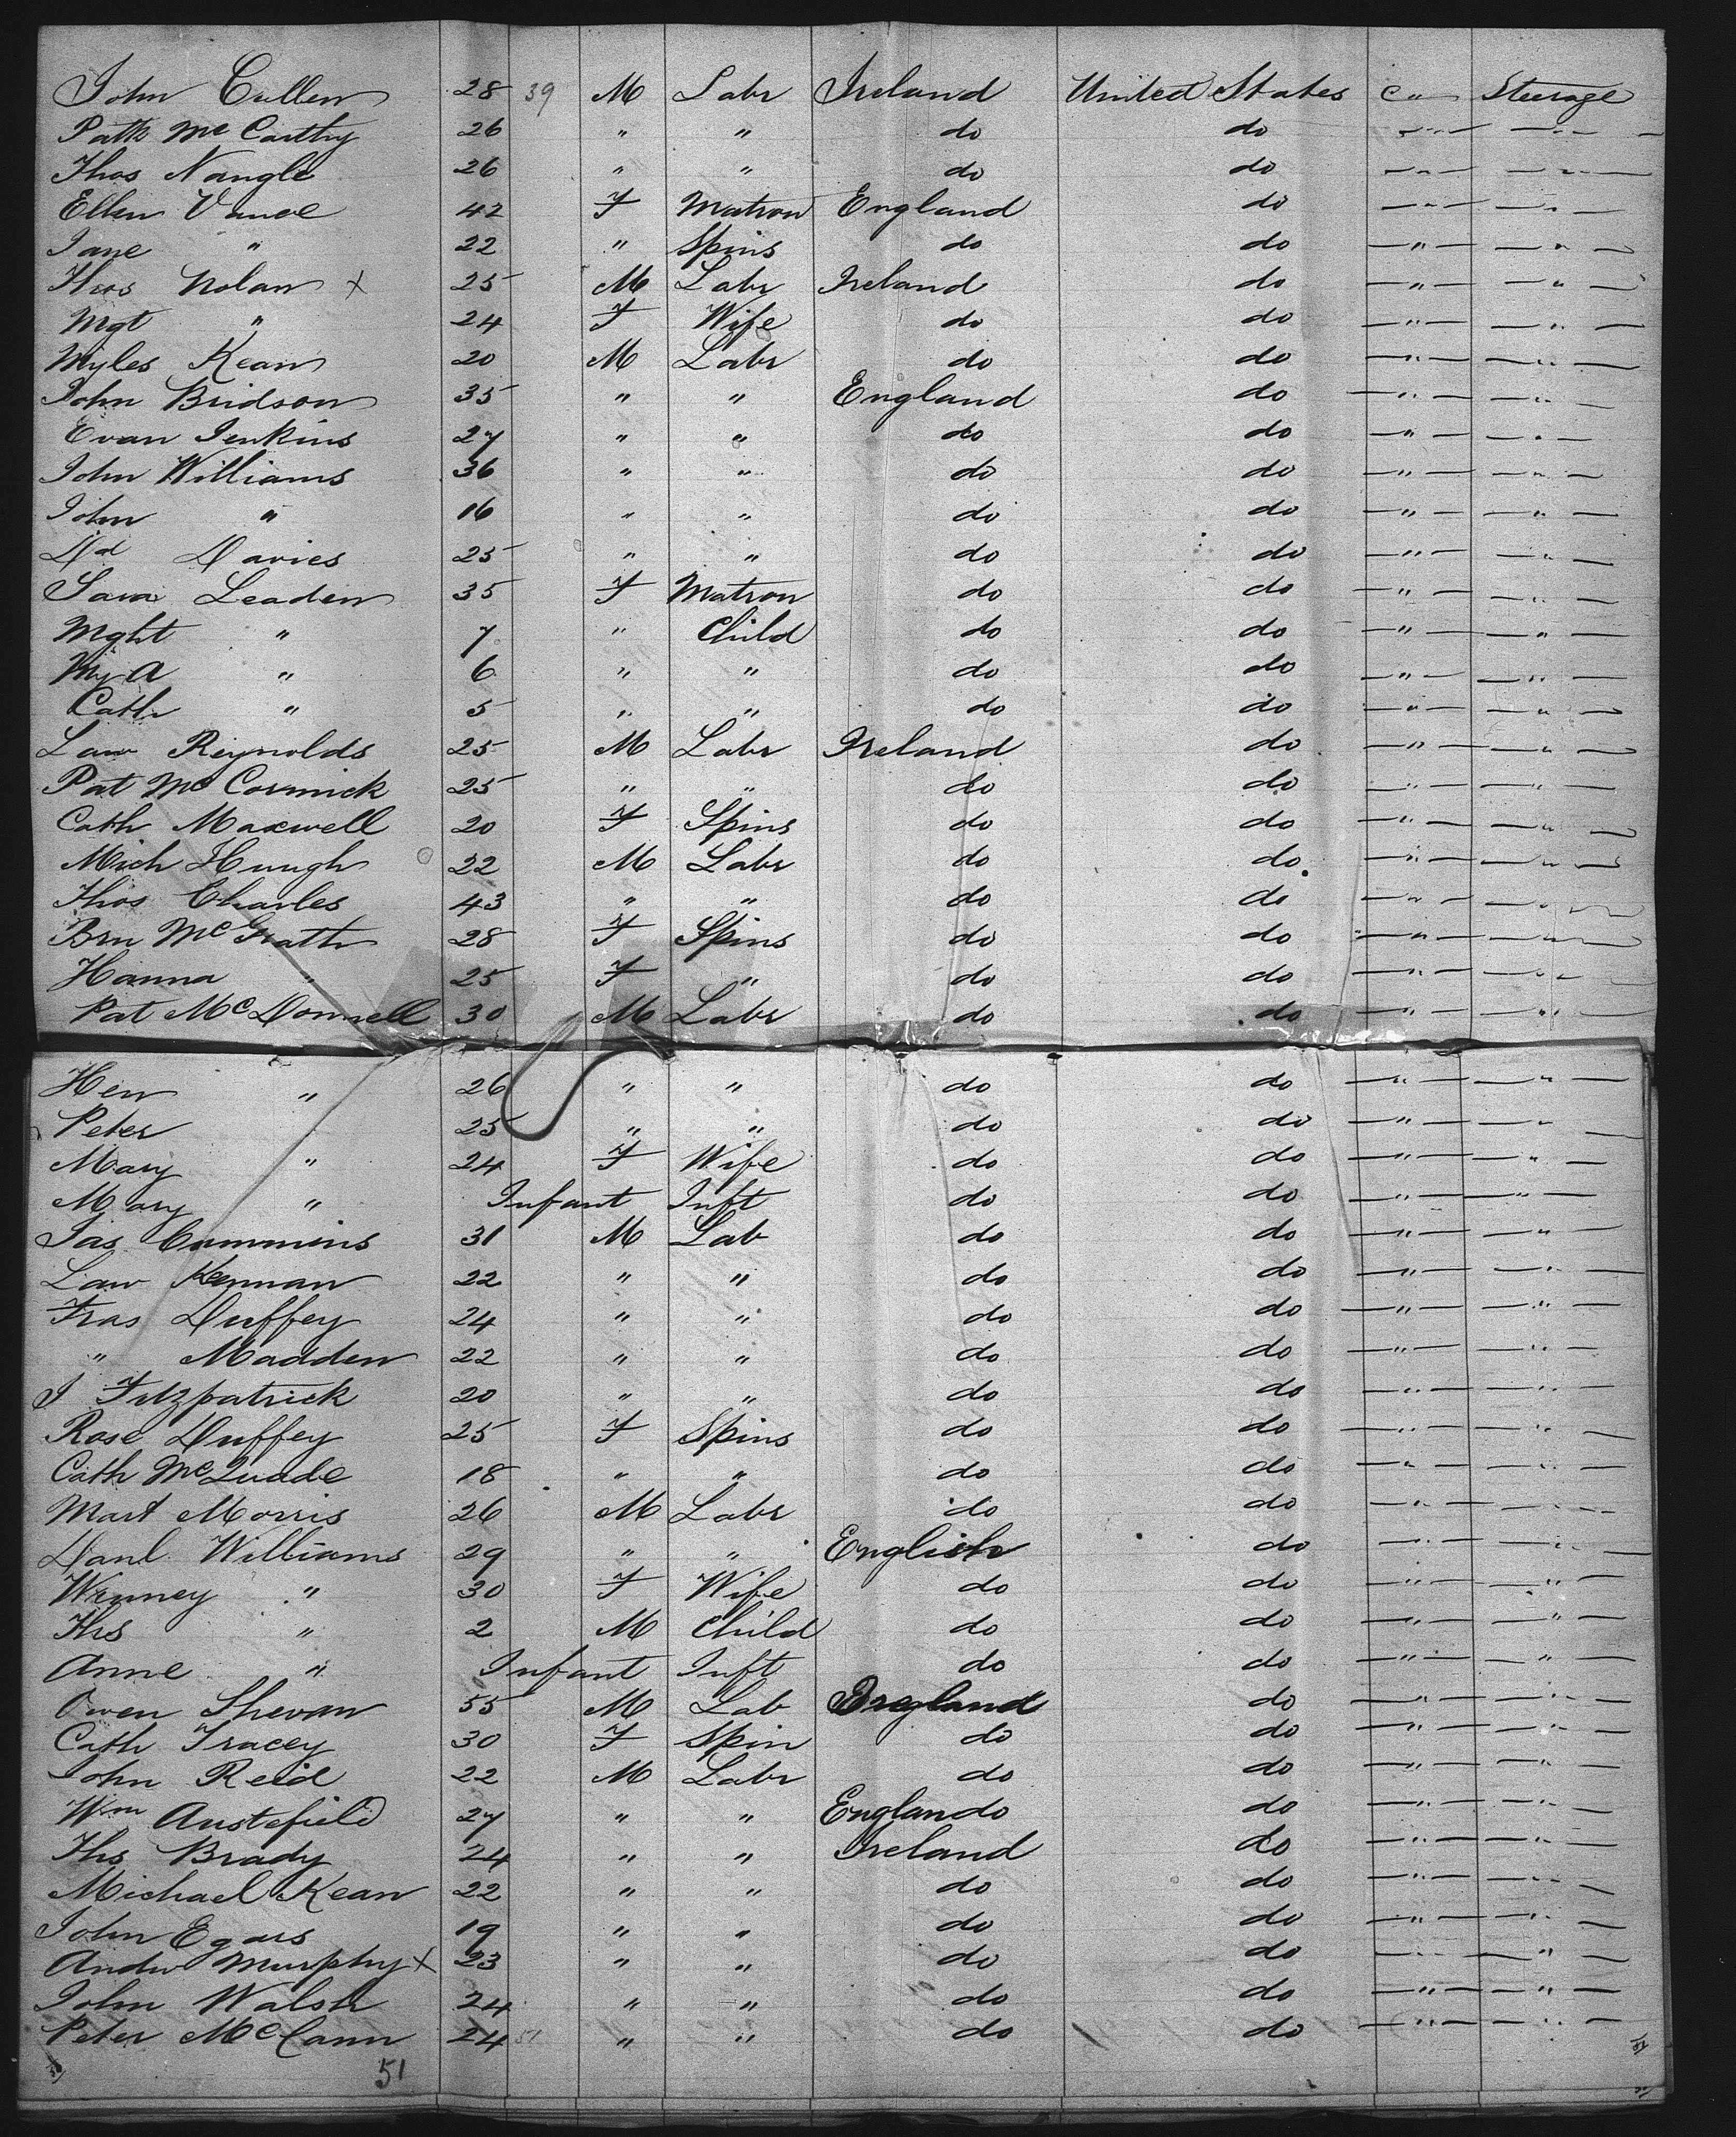 John Cullen 28 39 M Labr Ireland United States C " Steerage
Patk McCarthy 26 " " do do " "
Thos Nangle 26 " " do do " "
Ellen Vance 42 F Matron England do " "
Jane " 22 " Spins do do " "
Thos Nolan x 25 M Labr Ireland do " "
Mgt " 24 F Wife do do " "
Myles Kean 20 M Labr do do " "
John Bridson 35 " " England do " "
Evan Jenkins 27 " " do do " "
John Williams 36 " " do do " "
John " 16 " " do do " "
Dd Davies 25 " " do do " "
Sara Leaden 35 F Matron do do " "
Mght " 7 " Child do do " "
My A " 6 " " do do " "
Cath " 5 " " do do " "
Law Reynolds 25 M Labr Ireland do " "
Pat McCormick 25 " " do do " "
Cath Maxwell 20 F Spins do do " "
Mich Hungh 22 M Labr do do " "
Thos Charles 43 " " do do " "
Brn McGrath 28 F Spins do do " "
Hanna " 25 F " do do " "
Pat McDonnell 30 M Labr do do " "
Hen " 26 " " do do " "
Peter 25 " " do do " "
Mary " 24 F Wife do do " "
Mary " Infant Inft do do " "
Jas Cummins 31 M Lab do do " "
Law Kennan 22 " " do do " "
Fras Duffey 24 " " do do " "
" Madden 22 " " do do " "
J Fitzpatrick 20 " " do do " "
Rose Duffey 25 F Spins do do " "
Cath McQuade 18 " " do do " "
Mart Morris 26 M Labr do do " "
Danl Williams 29 " " English do " "
Winney " 30 F Wife do do " "
Ths " 2 M Child do do " "
Anne " Infant Inft do do " "
Owen Shevan 55 M Lab do " "
Cath Tracey 30 F Spin do do " "
John Reid 22 M Labr do do " "
Wm Austefield 27 " " Englando do " "
Ths Brady 24 " " Ireland do " "
Michael Kean 22 " " do do " "
John Egars 19 " " do do " "
Andw Murphy x 23 " " do do " "
John Walsh 24 " " do do " "
Peter McCann 24 51 " " do do " "
51